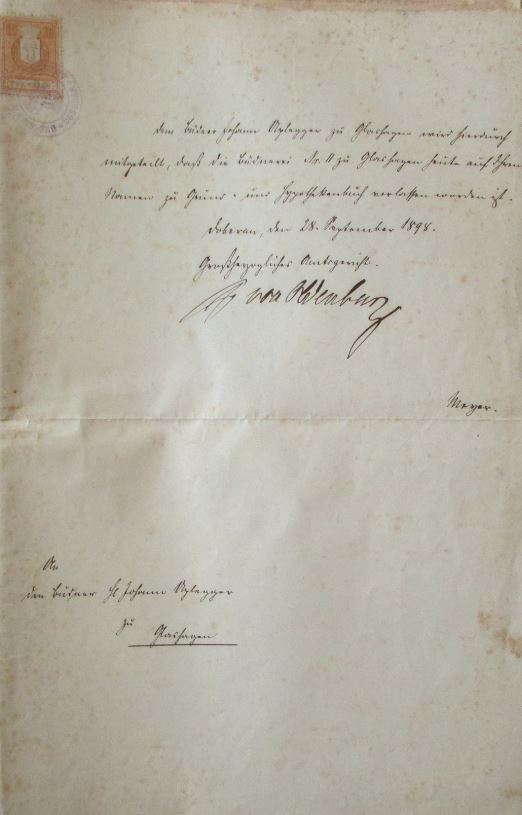 Dem Büdner Johann Uplegger zu Glashagen wird hierdurch
mitgeteilt, daß die Büdnerei No. 11 zu Glashagen heute auf Ihren
Namen zu Grund- und Hypothekenbuch verlassen worden ist.
Doberan, den 28. September 1898.
Großherzogliches Amtsgericht.
von Oldenburg
Meyer.
An
den Büdner Johann Uplegger
zu
Glashagen